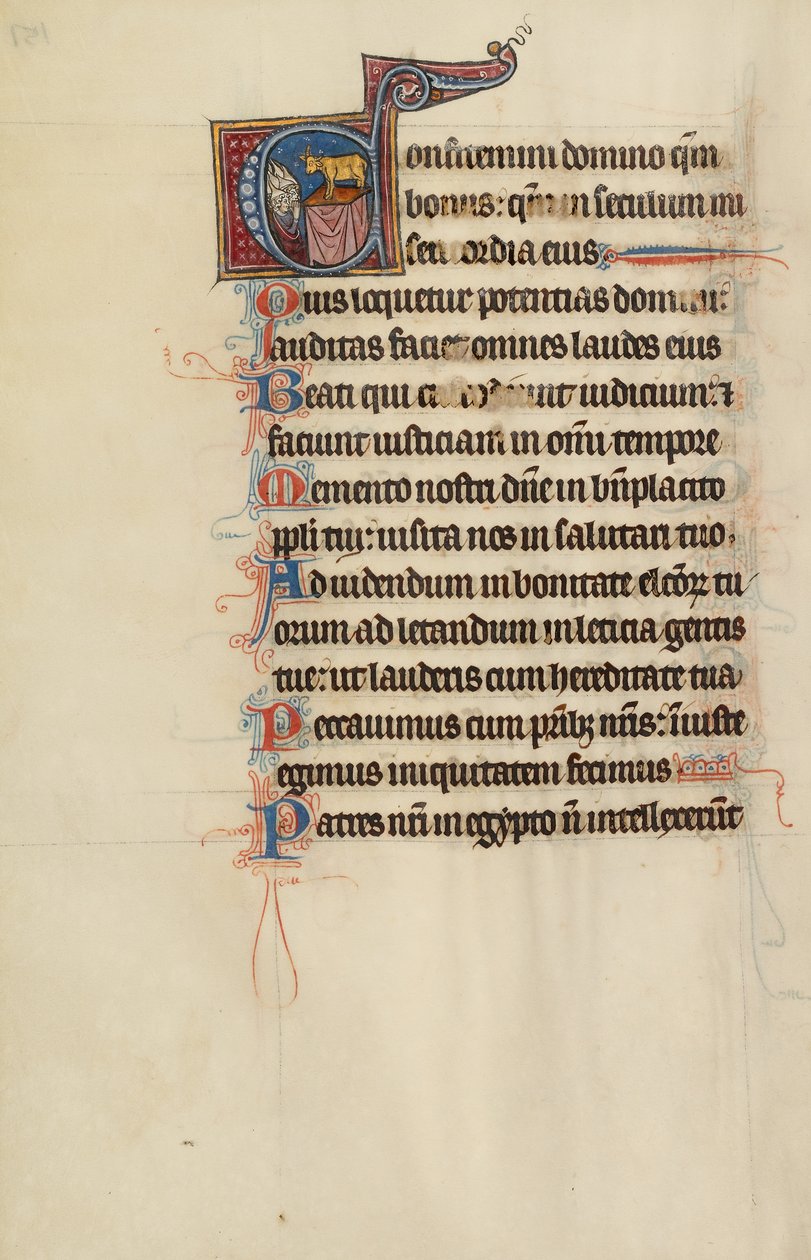 Confitemini domino qm̄
bonus: qm̄ in seculum mi
sericordia eius
Quis loquetur potentias domini:
auditas faciet omnes laudes eius
Beati qui custodiunt iudicium: ⁊
faciunt iusticiam in om̄i tempore
Memento nostri dn̄e in bn̄placito
ppli tui: uisita nos in salutari tuo.
Ad uidendum in bonitate elcōꝝ tu
orum ad letandum in leticia gentis
tue: ut lauderis cum hereditate tua
Peccauimus cum pr̄ibꝫ nr̄is: īiuste
egimus iniquitatem fecimus
Patres nr̄i in egypto n̄ intellexerūt